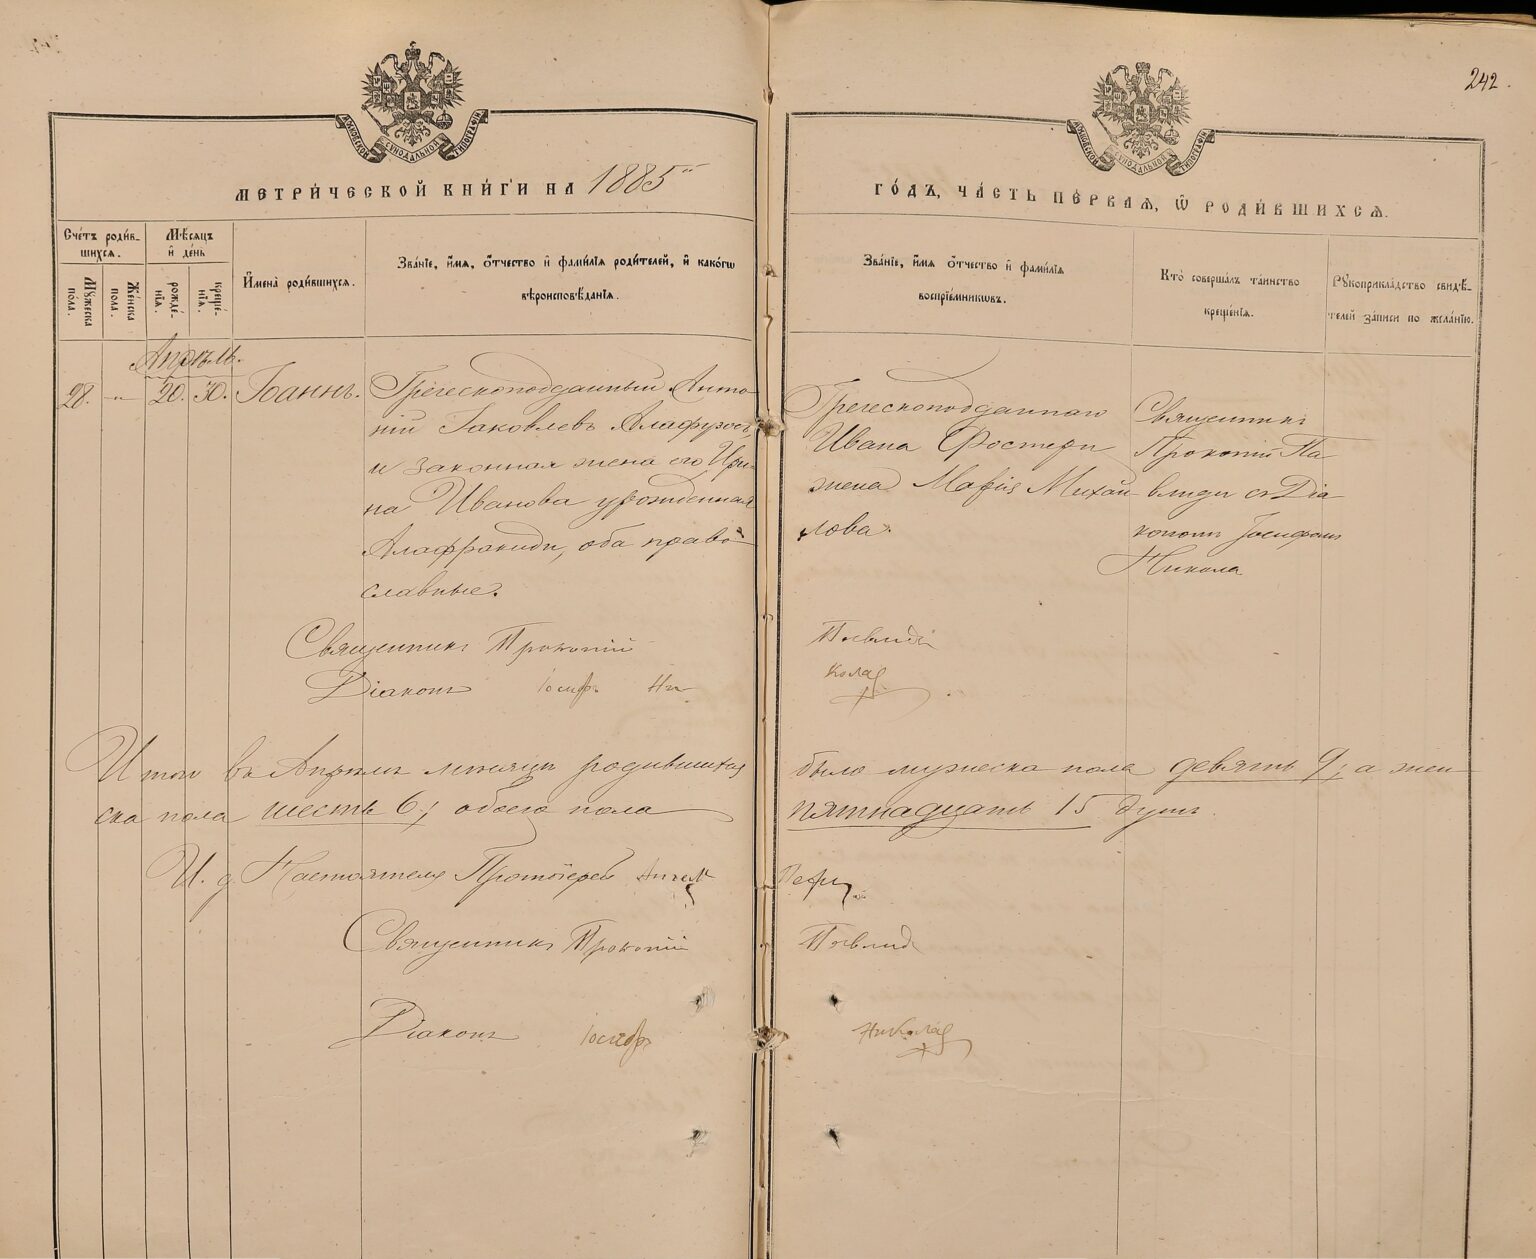 242.
МОСКОВСКОЙ СѴНОДАЛЬНОЙ ТИПОГРАФІИ
МОСКОВСКОЙ СѴНОДАЛЬНОЙ ТИПОГРАФІИ
МЕТРИ́ЧЕСКОЙ КНИ́ГИ НА 1885
ГО́ДЪ, ЧА́СТЬ ПЕ́РВАѦ, Ѡ РОДИ́ВШИХСѦ.
Сче́тъ роди́в-
шихсѧ.
Мѣ́сѧцъ
и҆ де́нь
Му́жеска
по́ла.
Же́нска
пола.
рожде́-
нїѧ.
креще́-
нїѧ.
И҆мена̀ роди́вшихсѧ.
Зва́нїе, и҆́мѧ, ѻ҆́тчество и҆ фами́лїѧ роди́телей, и҆ како́гѡ
вѣроисповѣ́данїѧ.
Зва́нїе, и҆́мѧ ѻ҆́тчество и҆ фами́лїѧ
воспрїе́мникѡвъ.
Кто̀ соверша́лъ та́инство
креще́нїѧ.
Рꙋкоприкла́дство свидѣ́-
телей за́писи по жела́нїю.
Апрѣль.
28. „ 20. 30. Іоаннъ.
Греческоподданный Анто-
ній Іаковлевъ Алафузосъ,
и законная жена его Ири-
на Иванова урожденная
Алафракиди, оба право-
славные.
Греческоподданнаго
Ивана Фостери
жена Марія Михай-
лова.
Священникъ
Прокопій Па-
влиди съ Діа-
кономъ Іосифомъ
Никола
Священникъ Прокопій Павлиди
Діаконъ Іосифъ Никола
Итого въ Апрѣлѣ мѣсяцѣ родившихся было мужеска пола девять 9, а жен-
ска пола шесть 6, обоего пола пятнадцать 15 душъ.
И. д. Настоятеля Протоіерей
Священникъ Прокопій Павлиди
Діаконъ Іосифъ Никола